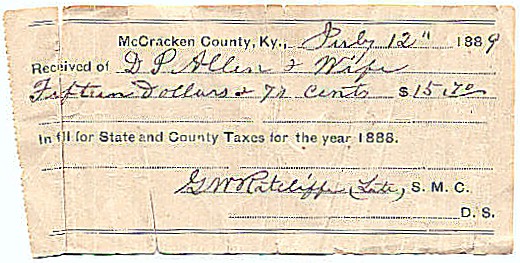 McCracken County, Ky., July 12" 1889
Received of D P Allen & Wife
Fifteen Dollars & cents $15.70
In fll for State and County Taxes for the year 1888.
G W Ratcliffe (Late) S. M. C.
D. S.